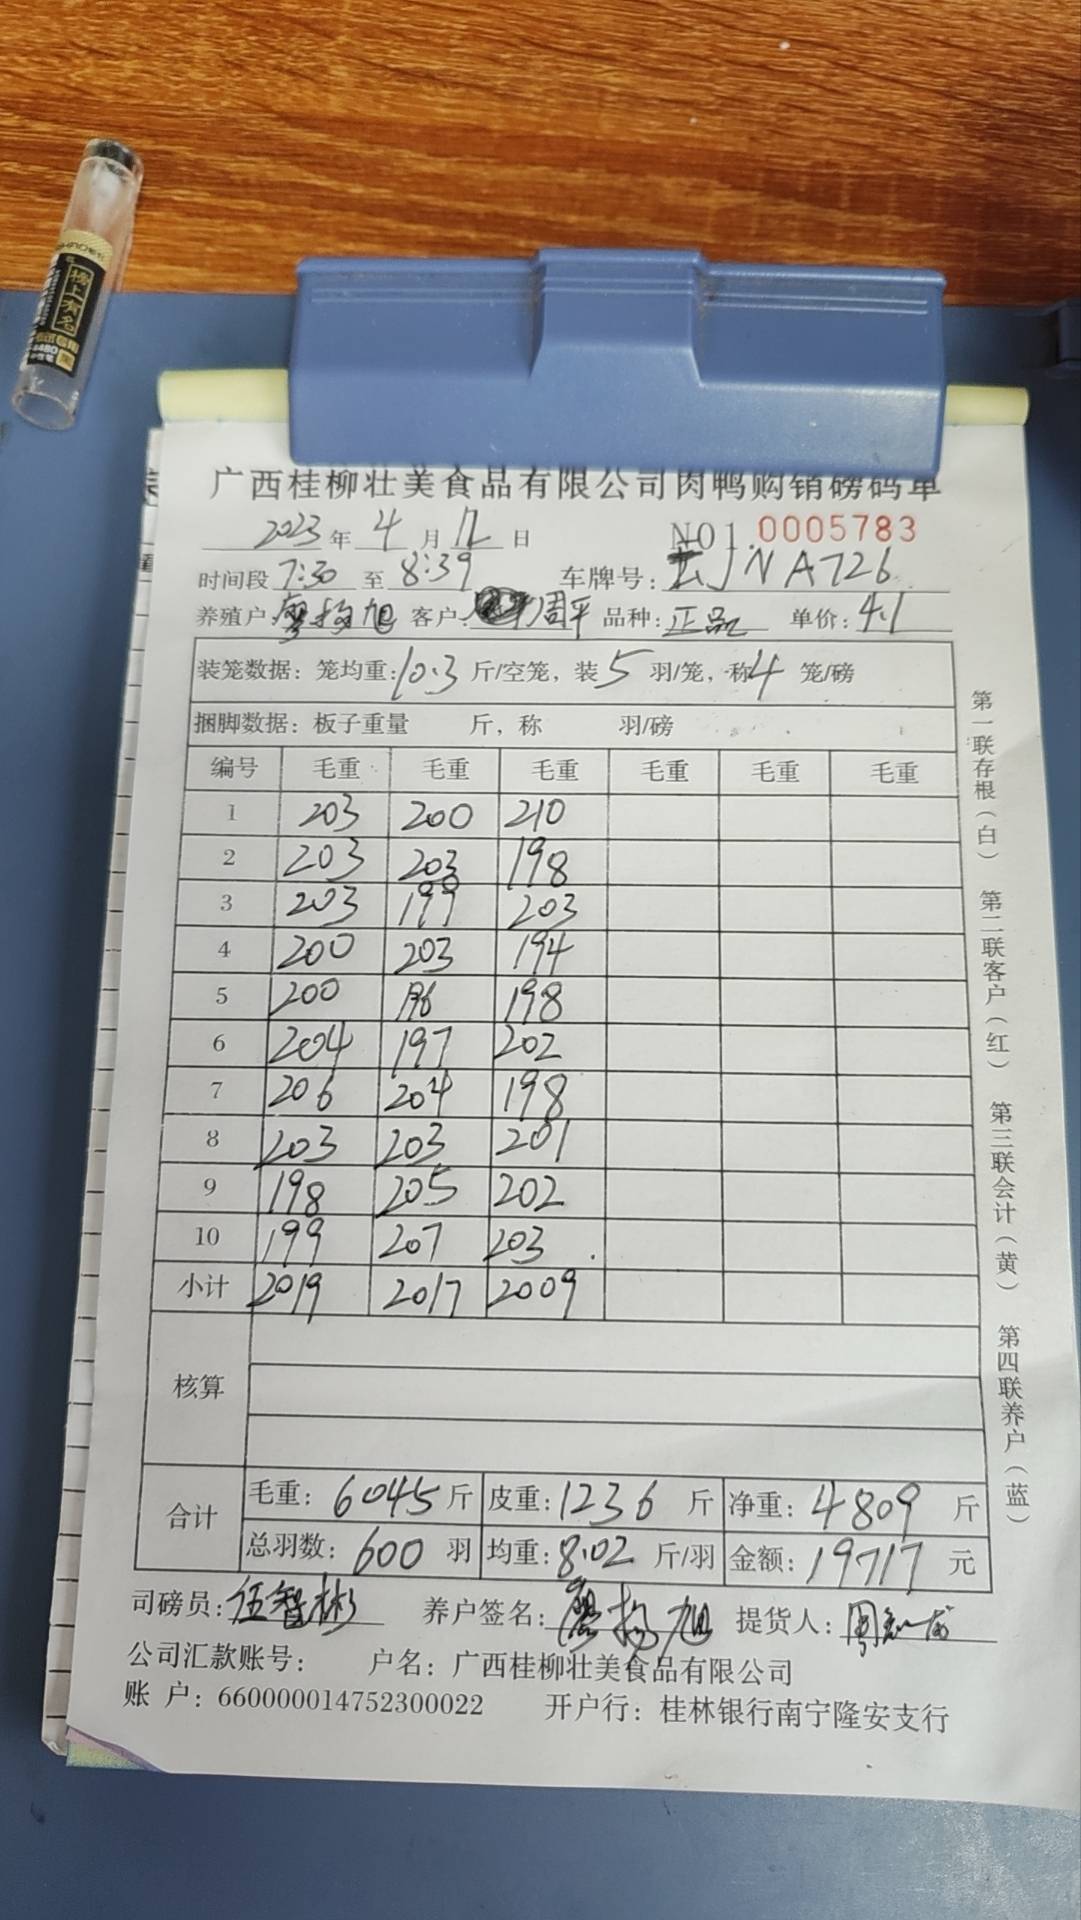 榜上有名
广西桂柳壮美食品有限公司肉鸭购销磅码单
2023 年 4 月 12 日 NO1.0005783
时间段 7:30 至 8:39 车牌号: JNA726
养殖户: 廖扬旭 客户: 周平 品种: 正品 单价: 4.1
装笼数据: 笼均重: 10.3 斤/空笼, 装 5 羽/笼, 称 4 笼/磅
捆脚数据: 板子重量 斤, 称 羽/磅
编号 毛重 毛重 毛重 毛重 毛重 毛重
1 203 200 210
2 203 203 198
3 203 199 203
4 200 203 194
5 200 196 198
6 204 197 202
7 206 204 198
8 203 203 201
9 198 205 202
10 199 207 203
小计 2019 2017 2009
核算
合计 毛重: 6045 斤 皮重: 1236 斤 净重: 4809 斤
总羽数: 600 羽 均重: 8.02 斤/羽 金额: 19717 元
司磅员: 伍智彬 养户签名: 廖扬旭 提货人: 周
公司汇款账号: 户名: 广西桂柳壮美食品有限公司
账 户: 660000014752300022 开户行: 桂林银行南宁隆安支行
第一联存根(白) 第二联客户(红) 第三联会计(黄) 第四联养户(蓝)